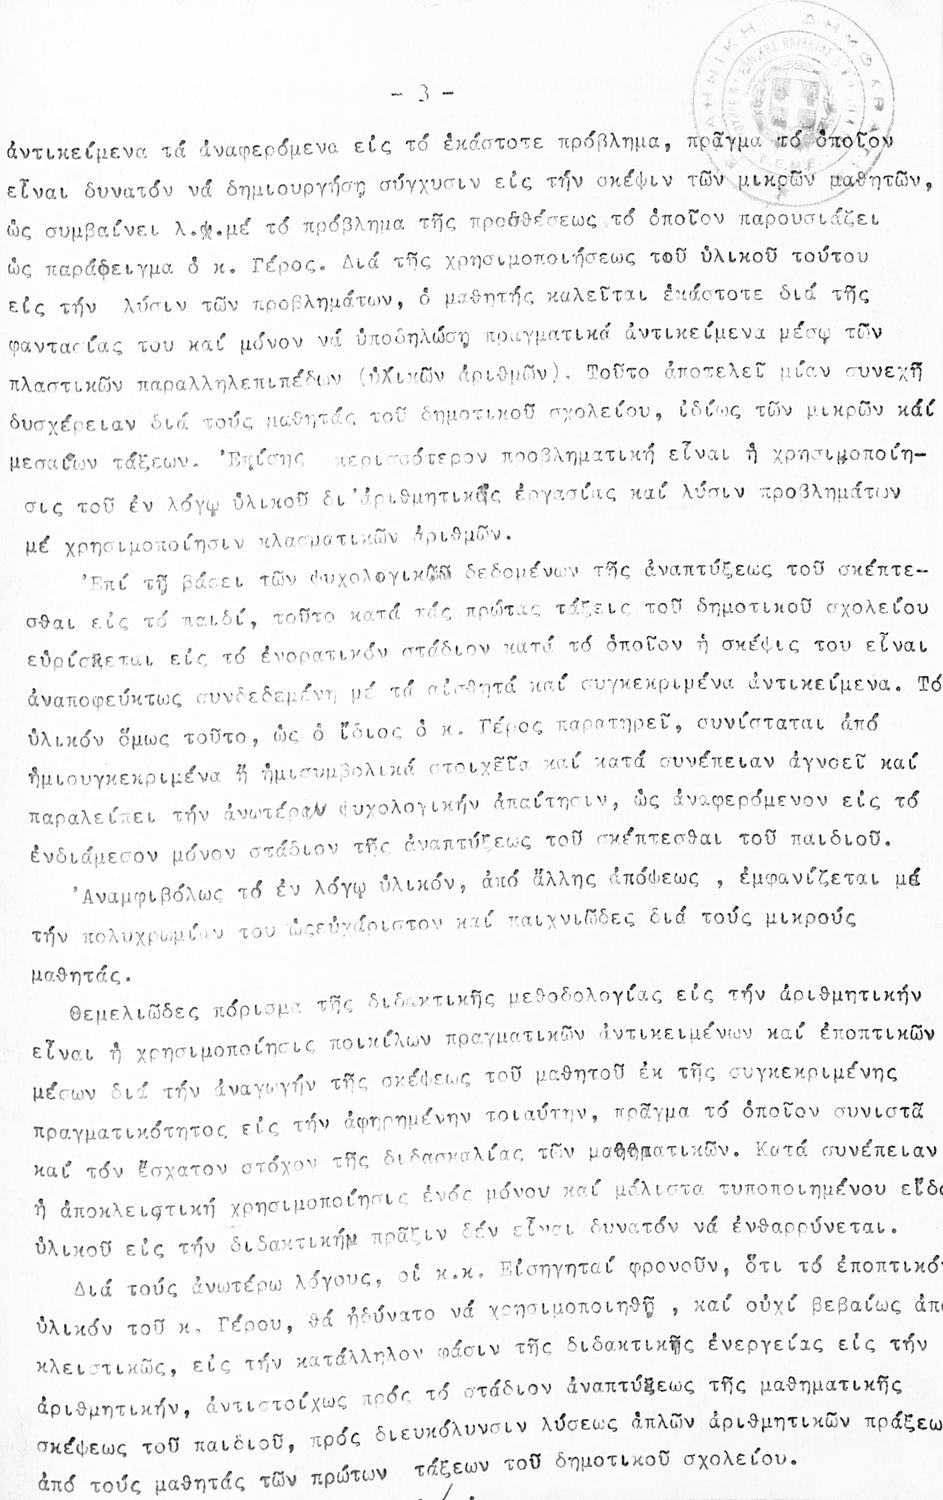 - 3 -
ἀντικείμενα τά ἀναφερόμενα εἰς τό ἑκάστοτε πρόβλημα, πρᾶγμα τό ὁποῖον
εἶναι δυνατόν νά δημιουργήσῃ σύγχυσιν εἰς τήν σκέψιν τῶν μικρῶν μαθητῶν,
ὡς συμβαίνει λ.χ.μέ τό πρόβλημα τῆς προσθέσεως τό ὁποῖον παρουσιάζει
ὡς παράδειγμα ὁ κ. Γέρος. Διά τῆς χρησιμοποιήσεως τοῦ ὑλικοῦ τούτου
εἰς τήν λύσιν τῶν προβλημάτων, ὁ μαθητής καλεῖται ἑκάστοτε διά τῆς
φαντασίας του καί μόνον νά ὑποδηλώσῃ πραγματικά ἀντικείμενα μέσῳ τῶν
πλαστικῶν παραλληλεπιπέδων (ὑλικῶν ἀριθμῶν). Τοῦτο ἀποτελεῖ μίαν συνεχῆ
δυσχέρειαν διά τούς μαθητάς τοῦ δημοτικοῦ σχολείου, ἰδίως τῶν μικρῶν καί
μεσαίων τάξεων. Ἐπίσης περισσότερον προβληματική εἶναι ἡ χρησιμοποίη-
σις τοῦ ἐν λόγῳ ὑλικοῦ δι'ἀριθμητικῆς ἐργασίας καί λύσιν προβλημάτων
μέ χρησιμοποίησιν κλασματικῶν ἀριθμῶν.
Ἐπί τῇ βάσει τῶν ψυχολογικῶν δεδομένων τῆς ἀναπτύξεως τοῦ σκέπτε-
σθαι εἰς τό παιδί, τοῦτο κατά τάς πρώτας τάξεις τοῦ δημοτικοῦ σχολείου
εὑρίσκεται εἰς τό ἐνορατικόν στάδιον κατά τό ὁποῖον ἡ σκέψις του εἶναι
ἀναποφεύκτως συνδεδεμένη μέ τά αἰσθητά καί συγκεκριμένα ἀντικείμενα. Τό
ὑλικόν ὅμως τοῦτο, ὡς ὁ ἴδιος ὁ κ. Γέρος παρατηρεῖ, συνίσταται ἀπό
ἡμισυγκεκριμένα ἤ ἡμισυμβολικά στοιχεῖα καί κατά συνέπειαν ἀγνοεῖ καί
παραλείπει τήν ἀνωτέραν ψυχολογικήν ἀπαίτησιν, ὡς ἀναφερόμενον εἰς τό
ἐνδιάμεσον μόνον στάδιον τῆς ἀναπτύξεως τοῦ σκέπτεσθαι τοῦ παιδιοῦ.
Ἀναμφιβόλως τό ἐν λόγῳ ὑλικόν, ἀπό ἄλλης ἀπόψεως , ἐμφανίζεται μέ
τήν πολυχρωμίαν του ὡςεὐχάριστον καί παιχνιῶδες διά τούς μικρούς
μαθητάς.
Θεμελιῶδες πόρισμα τῆς διδακτικῆς μεθοδολογίας εἰς τήν ἀριθμητικήν
εἶναι ἡ χρησιμοποίησις ποικίλων πραγματικῶν ἀντικειμένων καί ἐποπτικῶν
μέσων διά τήν ἀναγωγήν τῆς σκέψεως τοῦ μαθητοῦ ἐκ τῆς συγκεκριμένης
πραγματικότητος εἰς τήν ἀφηρημένην τοιαύτην, πρᾶγμα τό ὁποῖον συνιστᾶ
καί τόν ἔσχατον στόχον τῆς διδασκαλίας τῶν μαθηματικῶν. Κατά συνέπειαν
ἡ ἀποκλειστική χρησιμοποίησις ἑνός μόνον καί μάλιστα τυποποιημένου εἴδο
ὑλικοῦ εἰς τήν διδακτικήν πρᾶξιν δέν εἶναι δυνατόν νά ἐνθαρρύνεται.
Διά τούς ἀνωτέρω λόγους, οἱ κ.κ. Εἰσηγηταί φρονοῦν, ὅτι τό ἐποπτικόν
ὑλικόν τοῦ κ. Γέρου, θά ἠδύνατο νά χρησιμοποιηθῇ , καί οὐχί βεβαίως ἀπο
κλειστικῶς, εἰς τήν κατάλληλον φάσιν τῆς διδακτικῆς ἐνεργείας εἰς τήν
ἀριθμητικήν, ἀντιστοίχως πρός τό στάδιον ἀναπτύξεως τῆς μαθηματικῆς
σκέψεως τοῦ παιδιοῦ, πρός διευκόλυνσιν λύσεως ἁπλῶν ἀριθμητικῶν πράξεω
ἀπό τούς μαθητάς τῶν πρώτων τάξεων τοῦ δημοτικοῦ σχολείου.